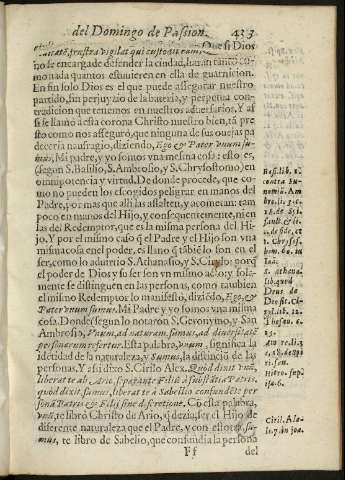 del Domingo de Passion. 433
uitatē, frustra vigilat qui custodit eam, Que si Dios
no se encarga de defender la ciudad, haran tanto co-
mo nada quantos estuuieren en ella de guarnicion.
En fin solo Dios es el que puede assegurar nuestro
partido, sin perjuyzio de la bateria, y perpetua con-
tradicion que tenemos en nuestros aduersarios. Y assi
se llamó a esta porona Christo nuestro bien, tā pres
to como nos asseguró, que ninguna de sus ouejas pa
deceria naufragio, diziendo, Ego & Pater vnum su-
mus, Mi padre, y yo somos vna mesma cosa: esto es,
(segun S. Basilio, S. Ambrosio, y S. Chrysostomo) en
omnipotencia y virtud. De donde procede, que co-
mo no pueden los escogidos peligrar en manos del
Padre, por mas que alli las assalten, y acometan: tam
poco en manos del Hijo, y consequentemente, ni en
las del Redemptor, que es la misma persona del Hi-
jo. Y por el mismo caso q̃ el Padre y el Hijo son vna
misma cosa en el poder, es llano q̃ tãbiē lo son en el
ser, como lo aduirtio S. Athanasio, y S. Cirilo: porq̃
el poder de Dios y su ser son vn mismo acto: y sola-
mente se distinguen en las personas, como tambien
el mismo Redemptor lo manifestò, diziēdo, Ego, &
Pater vnum sumus. Mi Padre y yo somos vna misma
cosa. Donde segun lo notaron S. Geronymo, y San
Ambrosio, Vnum, ad naturam. sumus, ad diuersitatē
personarum refertur. Esta palabra, vnum, significa la
idētidad de la naturaleza, y Sumus, la distinciō de las
personas. Y assi dixo S. Cirilo Alex. Quòd dixit vnū,
liberat te ab Ario, separante Filiū à substātia Patris.
quòd dixit, sumus, liberat te à Sabellio confundēte per
sonā Patris & Filij sine discretione. Cō esta palabra,
vnū, te librò Christo de Ario, q̃ dezia, ser el Hijo de
diferente naturaleza que el Padre, y con estotra su-
mus, te librò de Sabelio, que confundia la persona
Ff del
Basi. lib. 1.
contra Eu-
nomiū. Am
bro. li. 3. c.
Chrysos.
hom. 60. in
Ioā:
S. athana.
lib. quod
Deus de
Deo. st. Ci-
ril. lib. 12.
Thesau. c.
6. 18. de spi
ri. san.
Ciril. Ale.
li. 7. in ioa.